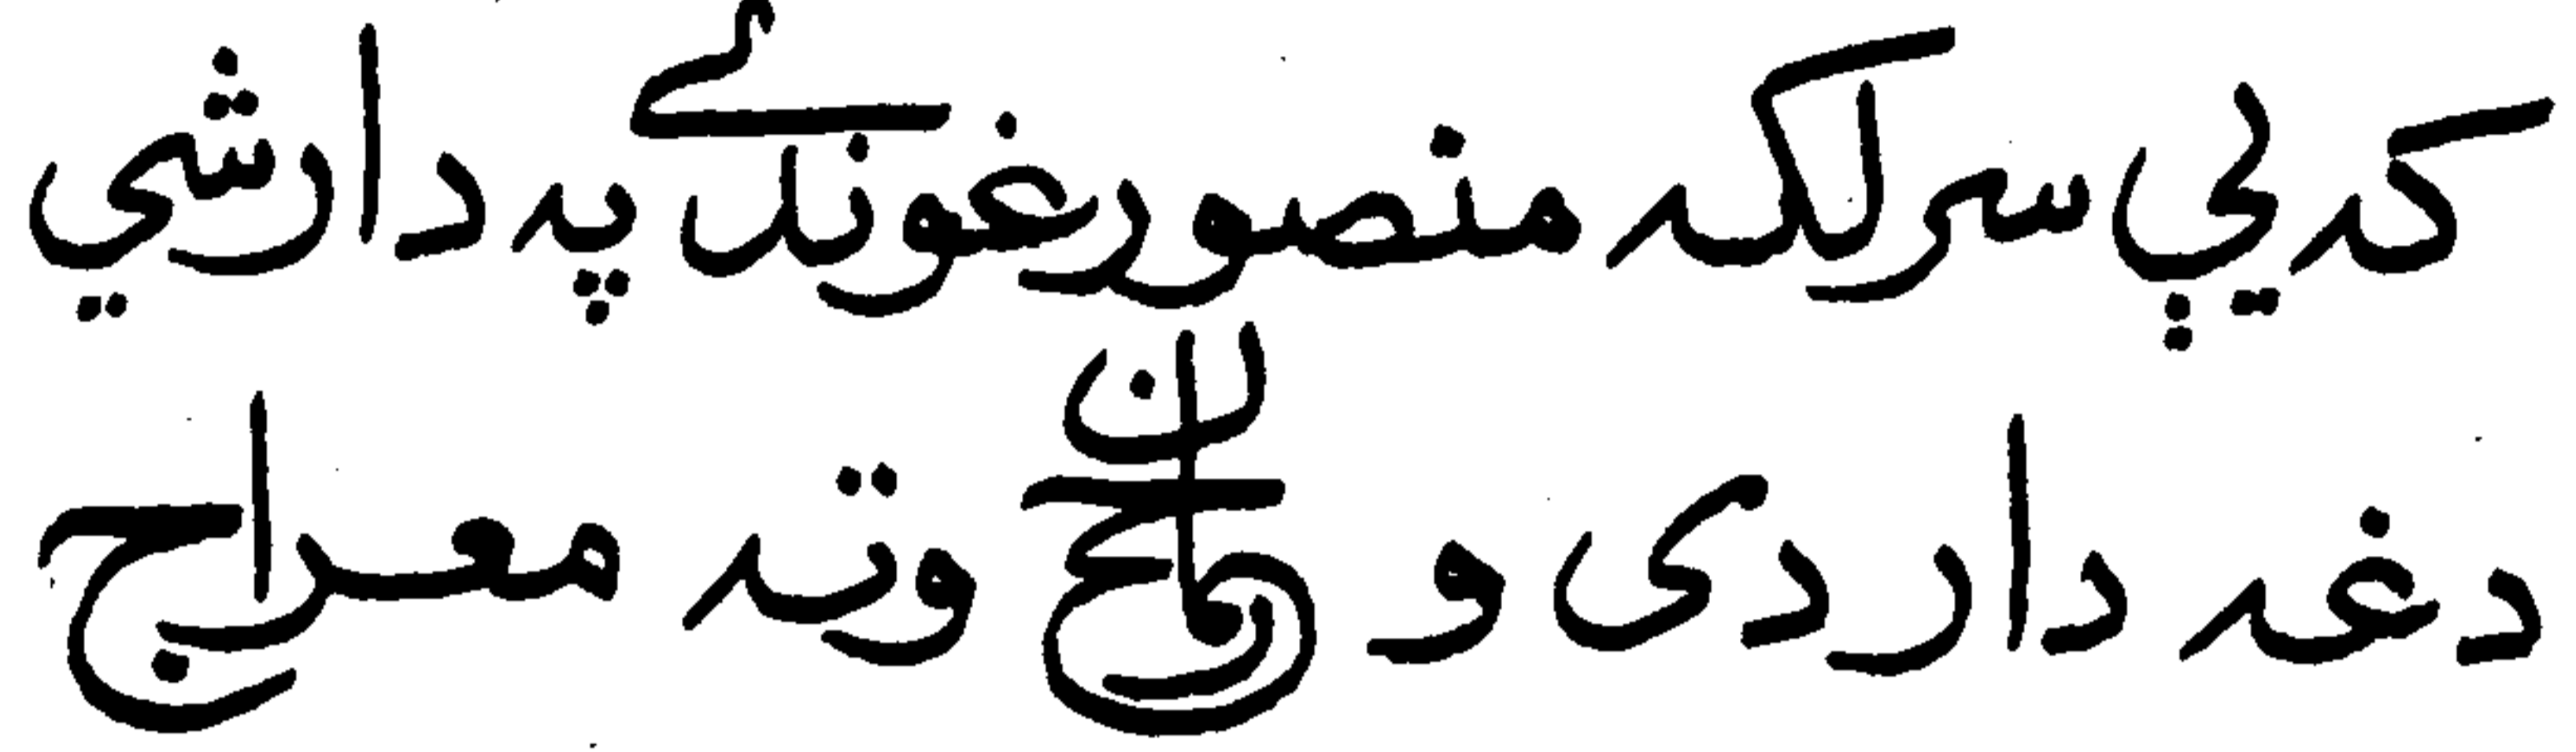 که يې سر لکه منصور غوندے په دار شي
دغه دار دی و رحمان وته معراج